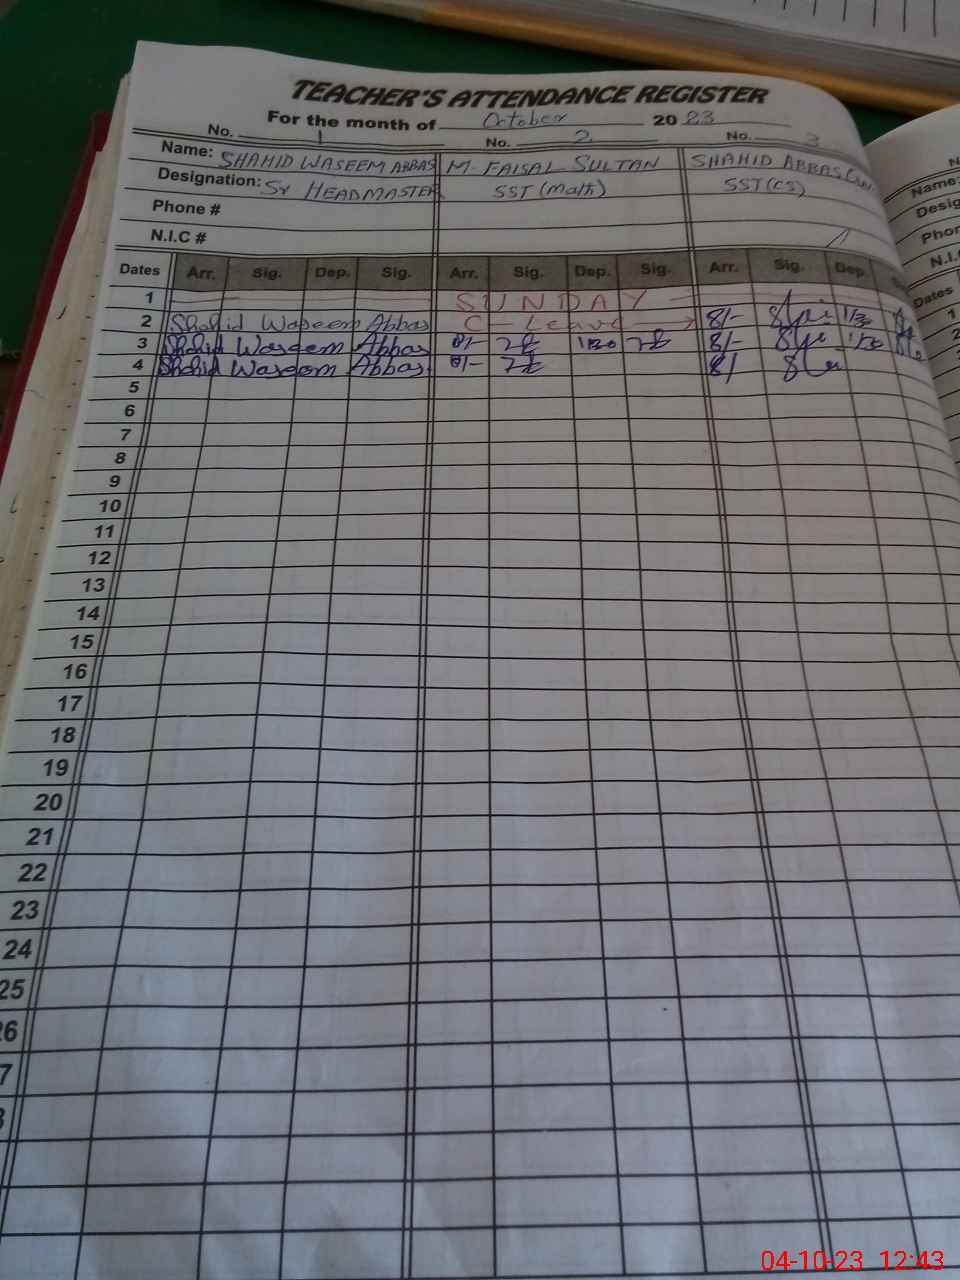 TEACHER'S ATTENDANCE REGISTER
For the month of October 20 23
No. 1 No. 2 No. 3
Name: SHAHID WASEEM ABBAS M. FAISAL SULTAN SHAHID ABBAS
Designation: Sr HEADMASTER SST (Math) SST (CS)
Phone #
N.I.C #
Dates Arr. Sig. Dep. Sig. Arr. Sig. Dep. Sig. Arr. Sig. Dep.
1 SUNDAY
2 Shahid Waseem Abbas C - Leave 8/- 1/30
3 Shahid Waseem Abbas 8/- 1:30 8/- 1/30
4 Shahid Waseem Abbas 8/- 8/
5
6
7
8
9
10
11
12
13
14
15
16
17
18
19
20
21
22
23
24
25
26
7
Name:
Desig
Phon
N.I.C
Dates
1
2
3
4
5
04-10-23 12:43